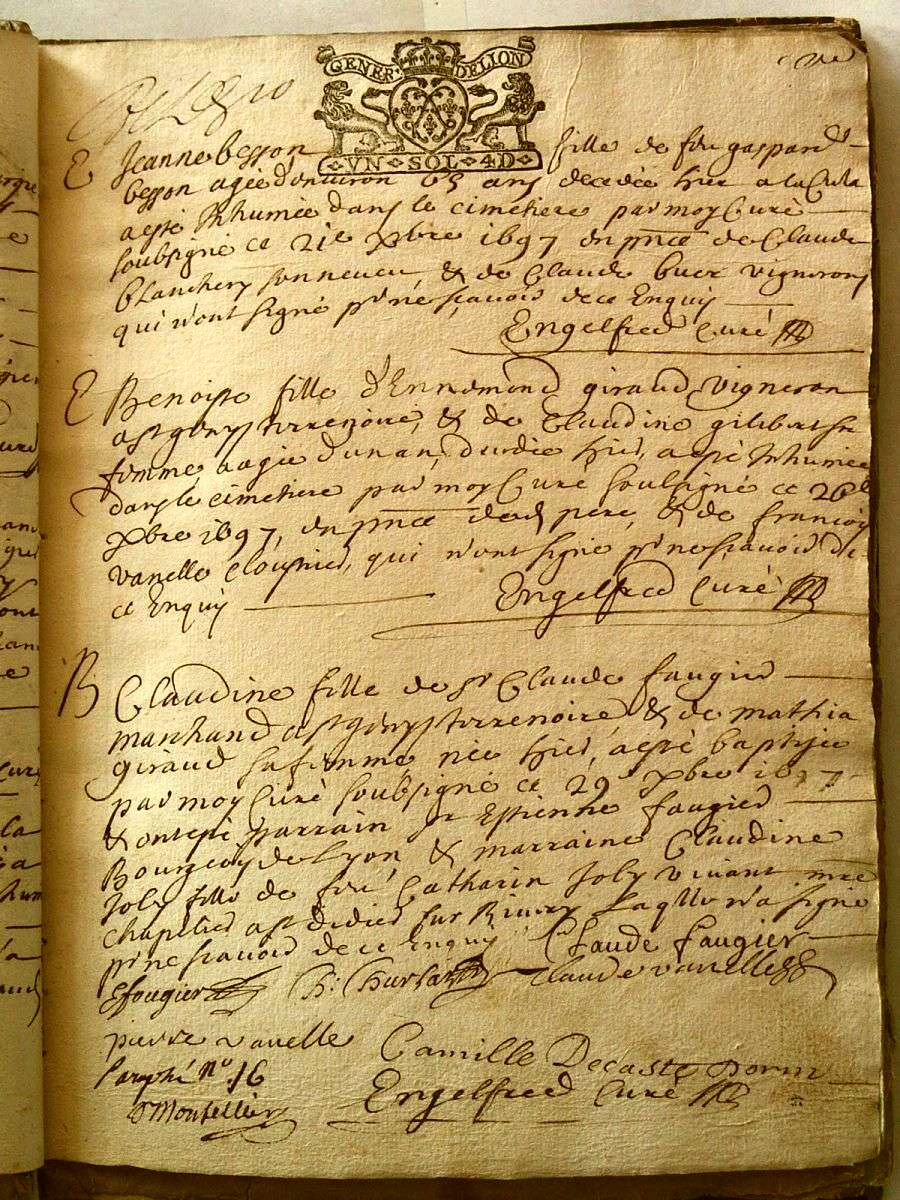 GENER· DELION
VN SOL 4D
E Jeanne besson fille de feu gaspard
besson agée d'environ 65 ans decedée hier a la
a esté Inhumée dans le cimetiere par moy Curé
soubsigné ce 21e xbre 1697 en pnce de Claude
blanchery son neveu & de Claude vignerons
qui n'ont signé pr ne sçavoir de ce Enquis
Engelfred Curé
E Benoiste fille d'Ennemond giraud vigneron
a st genys terrenoire, & de Claudine gilibert sa
femme aagée d'un an, decedée hier, a esté Inhumée
dans le cimetiere par moy Curé soubsigné ce 26e
xbre 1697, en pnce dud pere, & de francois
vanelle cloutier, qui n'ont signé pr ne sçavoir de
ce Enquis
Engelfred Curé
B Claudine fille de Sr Claude faugier
marchand a st genys terrenoire, & de mathia
giraud sa femme née hier, a esté baptisée
par moy Curé soubsigné ce 29e xbre 1697
& ont esté parrain Sr Estienne faugier
Bourgeois de Lyon, & marraine Claudine
Joly fille de feu Catharin Joly vivant mre
chapelier a st didier sur Laqlle n'a signé
pr ne sçavoir de ce Enquis Claude faugier
Efougier Claude vanelle
pierre vanelle Camille
Paraphé no. 16
Engelfred Curé
DMontellier